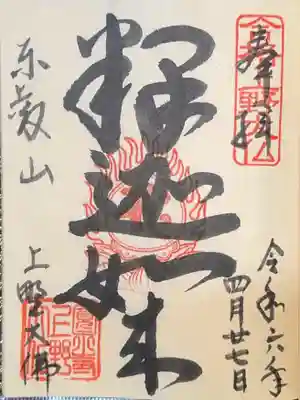 奉拝
令和六年
四月廿七日
釋迦如来
东叡山
上野大佛